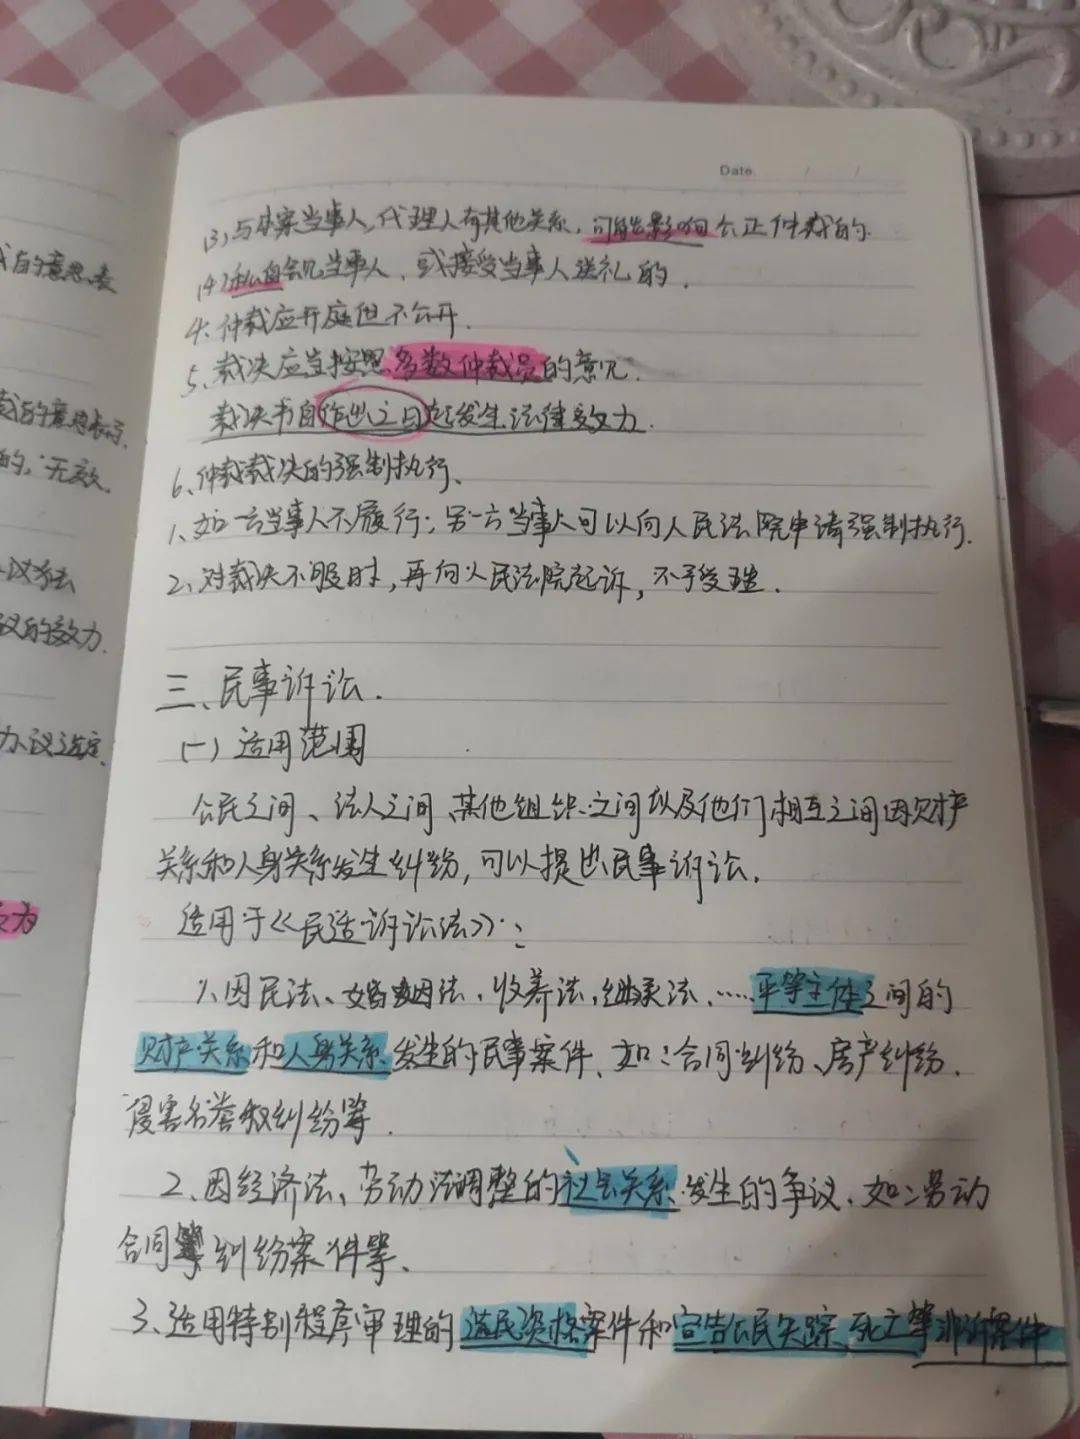 我的意思表
裁的意思表示.
的,无效.
议的效力.
办议选定.
效力
Date / /
(3)与本案当事人,代理人有其他关系,可能影响公正仲裁的.
(4)私自会见当事人、或接受当事人送礼的.
4、仲裁应开庭但不公开.
5、裁决应当按照多数仲裁员的意见.
裁决书自作出之日起发生法律效力.
6、仲裁裁决的强制执行、
1、如一方当事人不履行;另一方当事人可以向人民法院申请强制执行.
2、对裁决不服时,再向人民法院起诉,不予受理.
三、民事诉讼.
(一)适用范围
公民之间、法人之间、其他组织之间以及他们相互之间因财产
关系和人身关系发生纠纷,可以提出民事诉讼.
适用于《民适诉讼法》:
1、因民法、婚姻法、收养法,继承法、……平等主体之间的
财产关系和人身关系发生的民事案件、如:合同纠纷、房产纠纷.
侵害名誉权纠纷等.
2、因经济法、劳动法调整的社会关系发生的争议、如:劳动
合同纠纷案件等、
3、适用特别程序审理的选民资格案件和宣告公民失踪、死亡等非诉案件